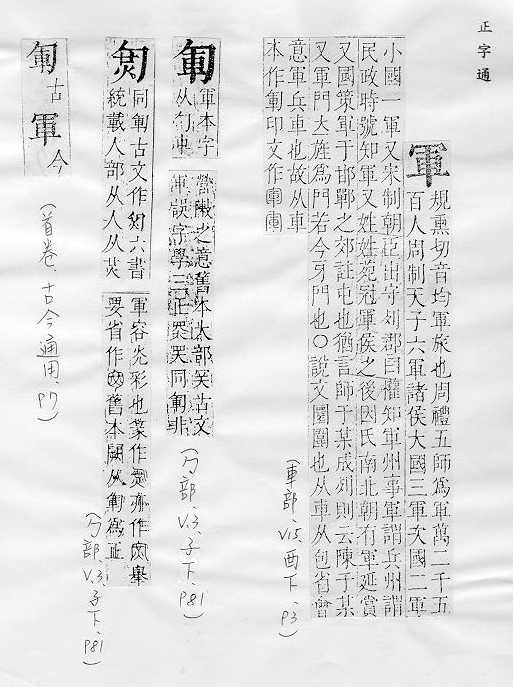 正字通
軍 規熏切音均軍旅也周禮五師為軍萬二千五
百人周制天子六軍諸侯大國三軍次國二軍
小國一軍又宋制朝臣出守列郡曰權知軍州事軍謂兵州謂
民政時號知軍又姓姓苑冠軍侯之後因氏南北朝有軍延賞
又國策軍于邯鄲之郊註屯也猶言師于某成列則云陳于某
又軍門大旌為門若今牙門也〇說文圜圍也从車从包省會
意軍兵車也故从車
本作軍印文作
(車部、V.15、酉下、P3)
軍本字
从勹車
營衛之意舊本大部笑古文
軍誤字學三正 同 非
(勹部、V.3、子下、P81)
同 古文作 六書
統載人部从人从炗
軍容光彩也篆作 亦作 舉
要省作 舊本闕从 為正
(勹部、V.3、子下、P81)
古
軍 今
(首卷、古今通用、P7)